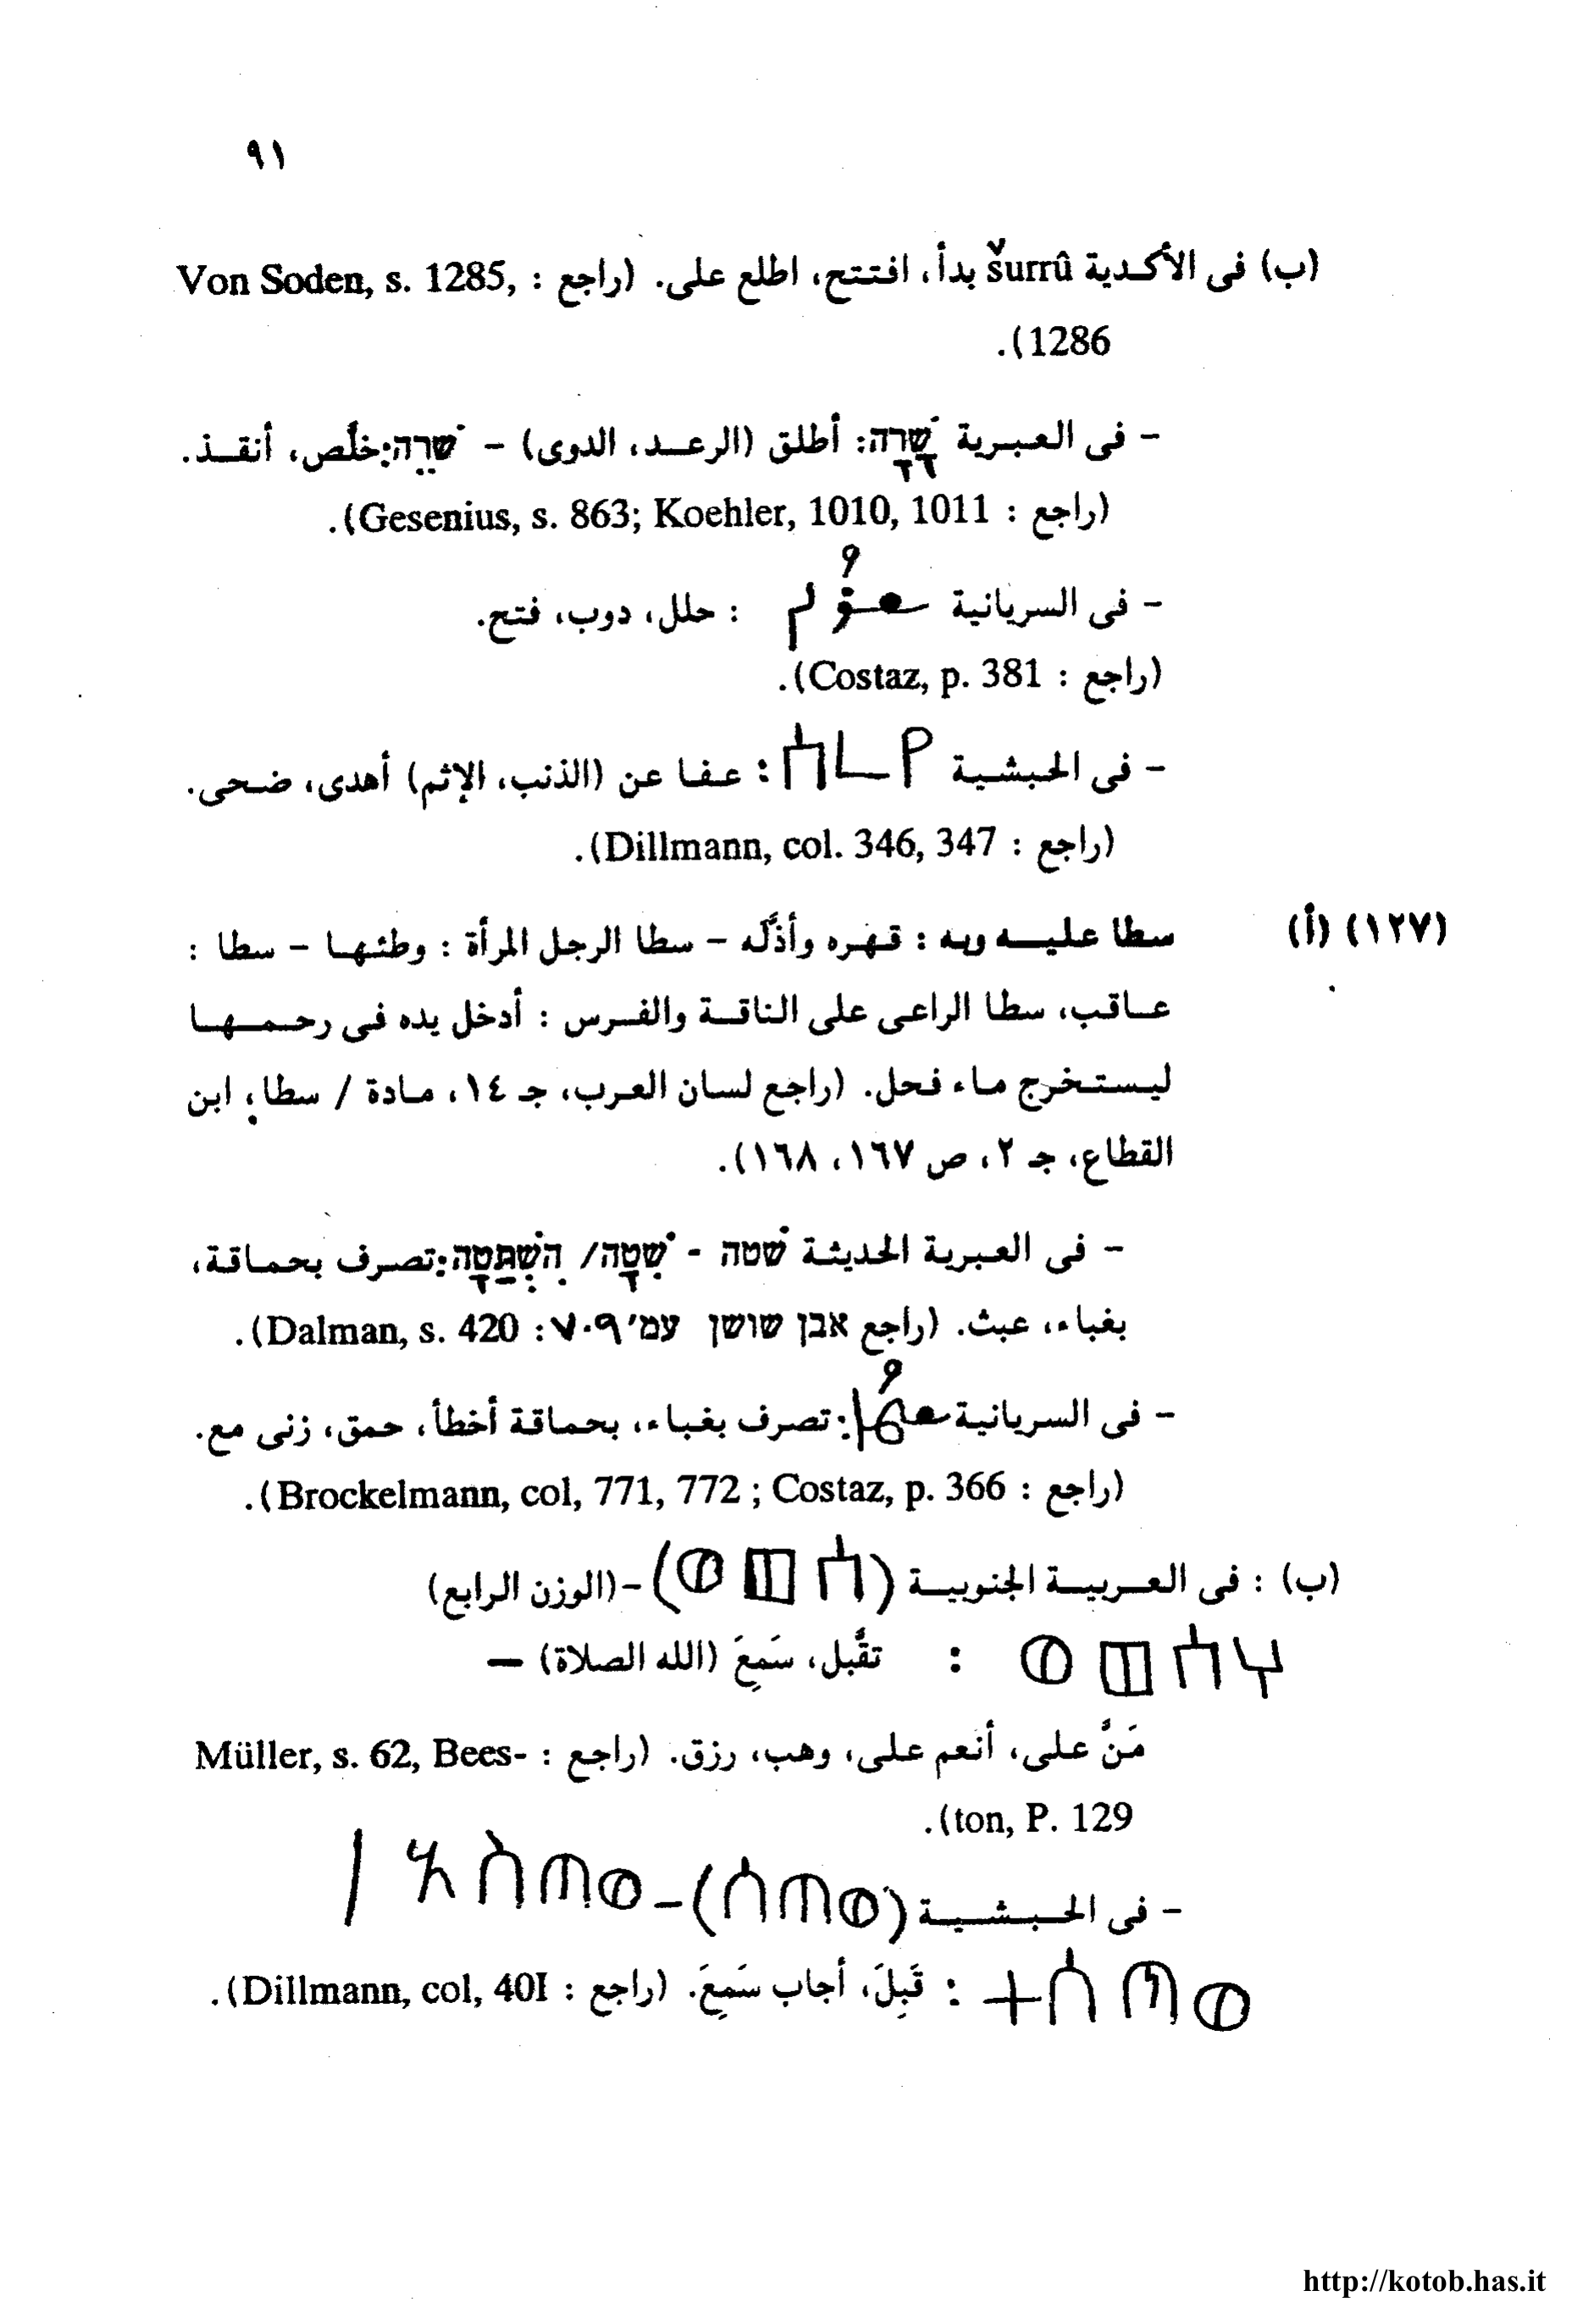 ٩١
(ب) فى الأكدية šurrû بدأ، افتتح، اطلع على. (راجع : Von Soden, s. 1285,
1286).
- فى العبرية שָׁרָה: أطلق (الرعد، الدوى) - שֵׁרֵה: خلّص، أنقذ.
(راجع : Gesenius, s. 863; Koehler, 1010, 1011).
- فى السريانية : حلل، دوب، فتح.
(راجع : Costaz, p. 381).
- فى الحبشية ሰረየ : عفا عن (الذنب، الإثم) أهدى، ضحى.
(راجع : Dillmann, col. 346, 347).
(١٢٧) (أ) سطا عليه وبه : قهره وأذلَّه - سطا الرجل المرأة : وطئها - سطا :
عاقب، سطا الراعى على الناقة والفرس : أدخل يده فى رحمها
ليستخرج ماء فحل. (راجع لسان العرب، جـ ١٤، مادة / سطا، ابن
القطاع، جـ ٢، ص ١٦٧، ١٦٨).
- فى العبرية الحديثة שׁטה - שִׁטָּה/ הִשְׁתַּטָּה: تصرف بحماقة،
بغباء، عبث. (راجع אבן שושן עמ' ٧٠٩: Dalman, s. 420).
- فى السريانية ܫܛܐ: تصرف بغباء، بحماقة أخطأ، حمق، زنى مع.
(راجع : Brockelmann, col, 771, 772 ; Costaz, p. 366).
(ب) : فى العربية الجنوبية (𐩪𐩷𐩥) -(الوزن الرابع)
: تقُّبل، سَمِعَ (الله الصلاة) —
مَنَّ على، أنعم على، وهب، رزق. (راجع : Müller, s. 62, Bees-
ton, P. 129).
- فى الحبشية (ሰጠወ) - አስጠወ /
ተሰጥወ : قَبِلَ، أجاب سَمِعَ. (راجع : Dillmann, col, 40I).
http://kotob.has.it